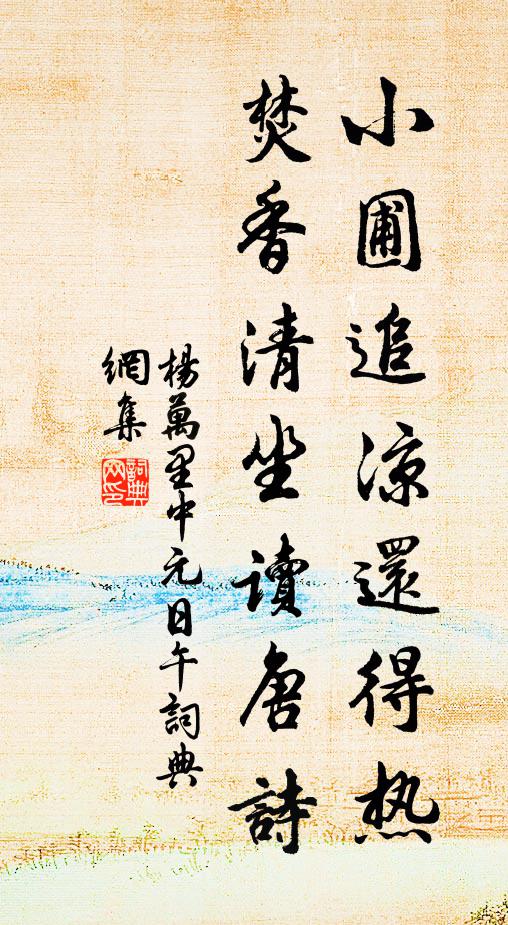 小圃追涼還得热
焚香清坐讀唐詩
楊萬里中元日午詞典
網集
詞典網印